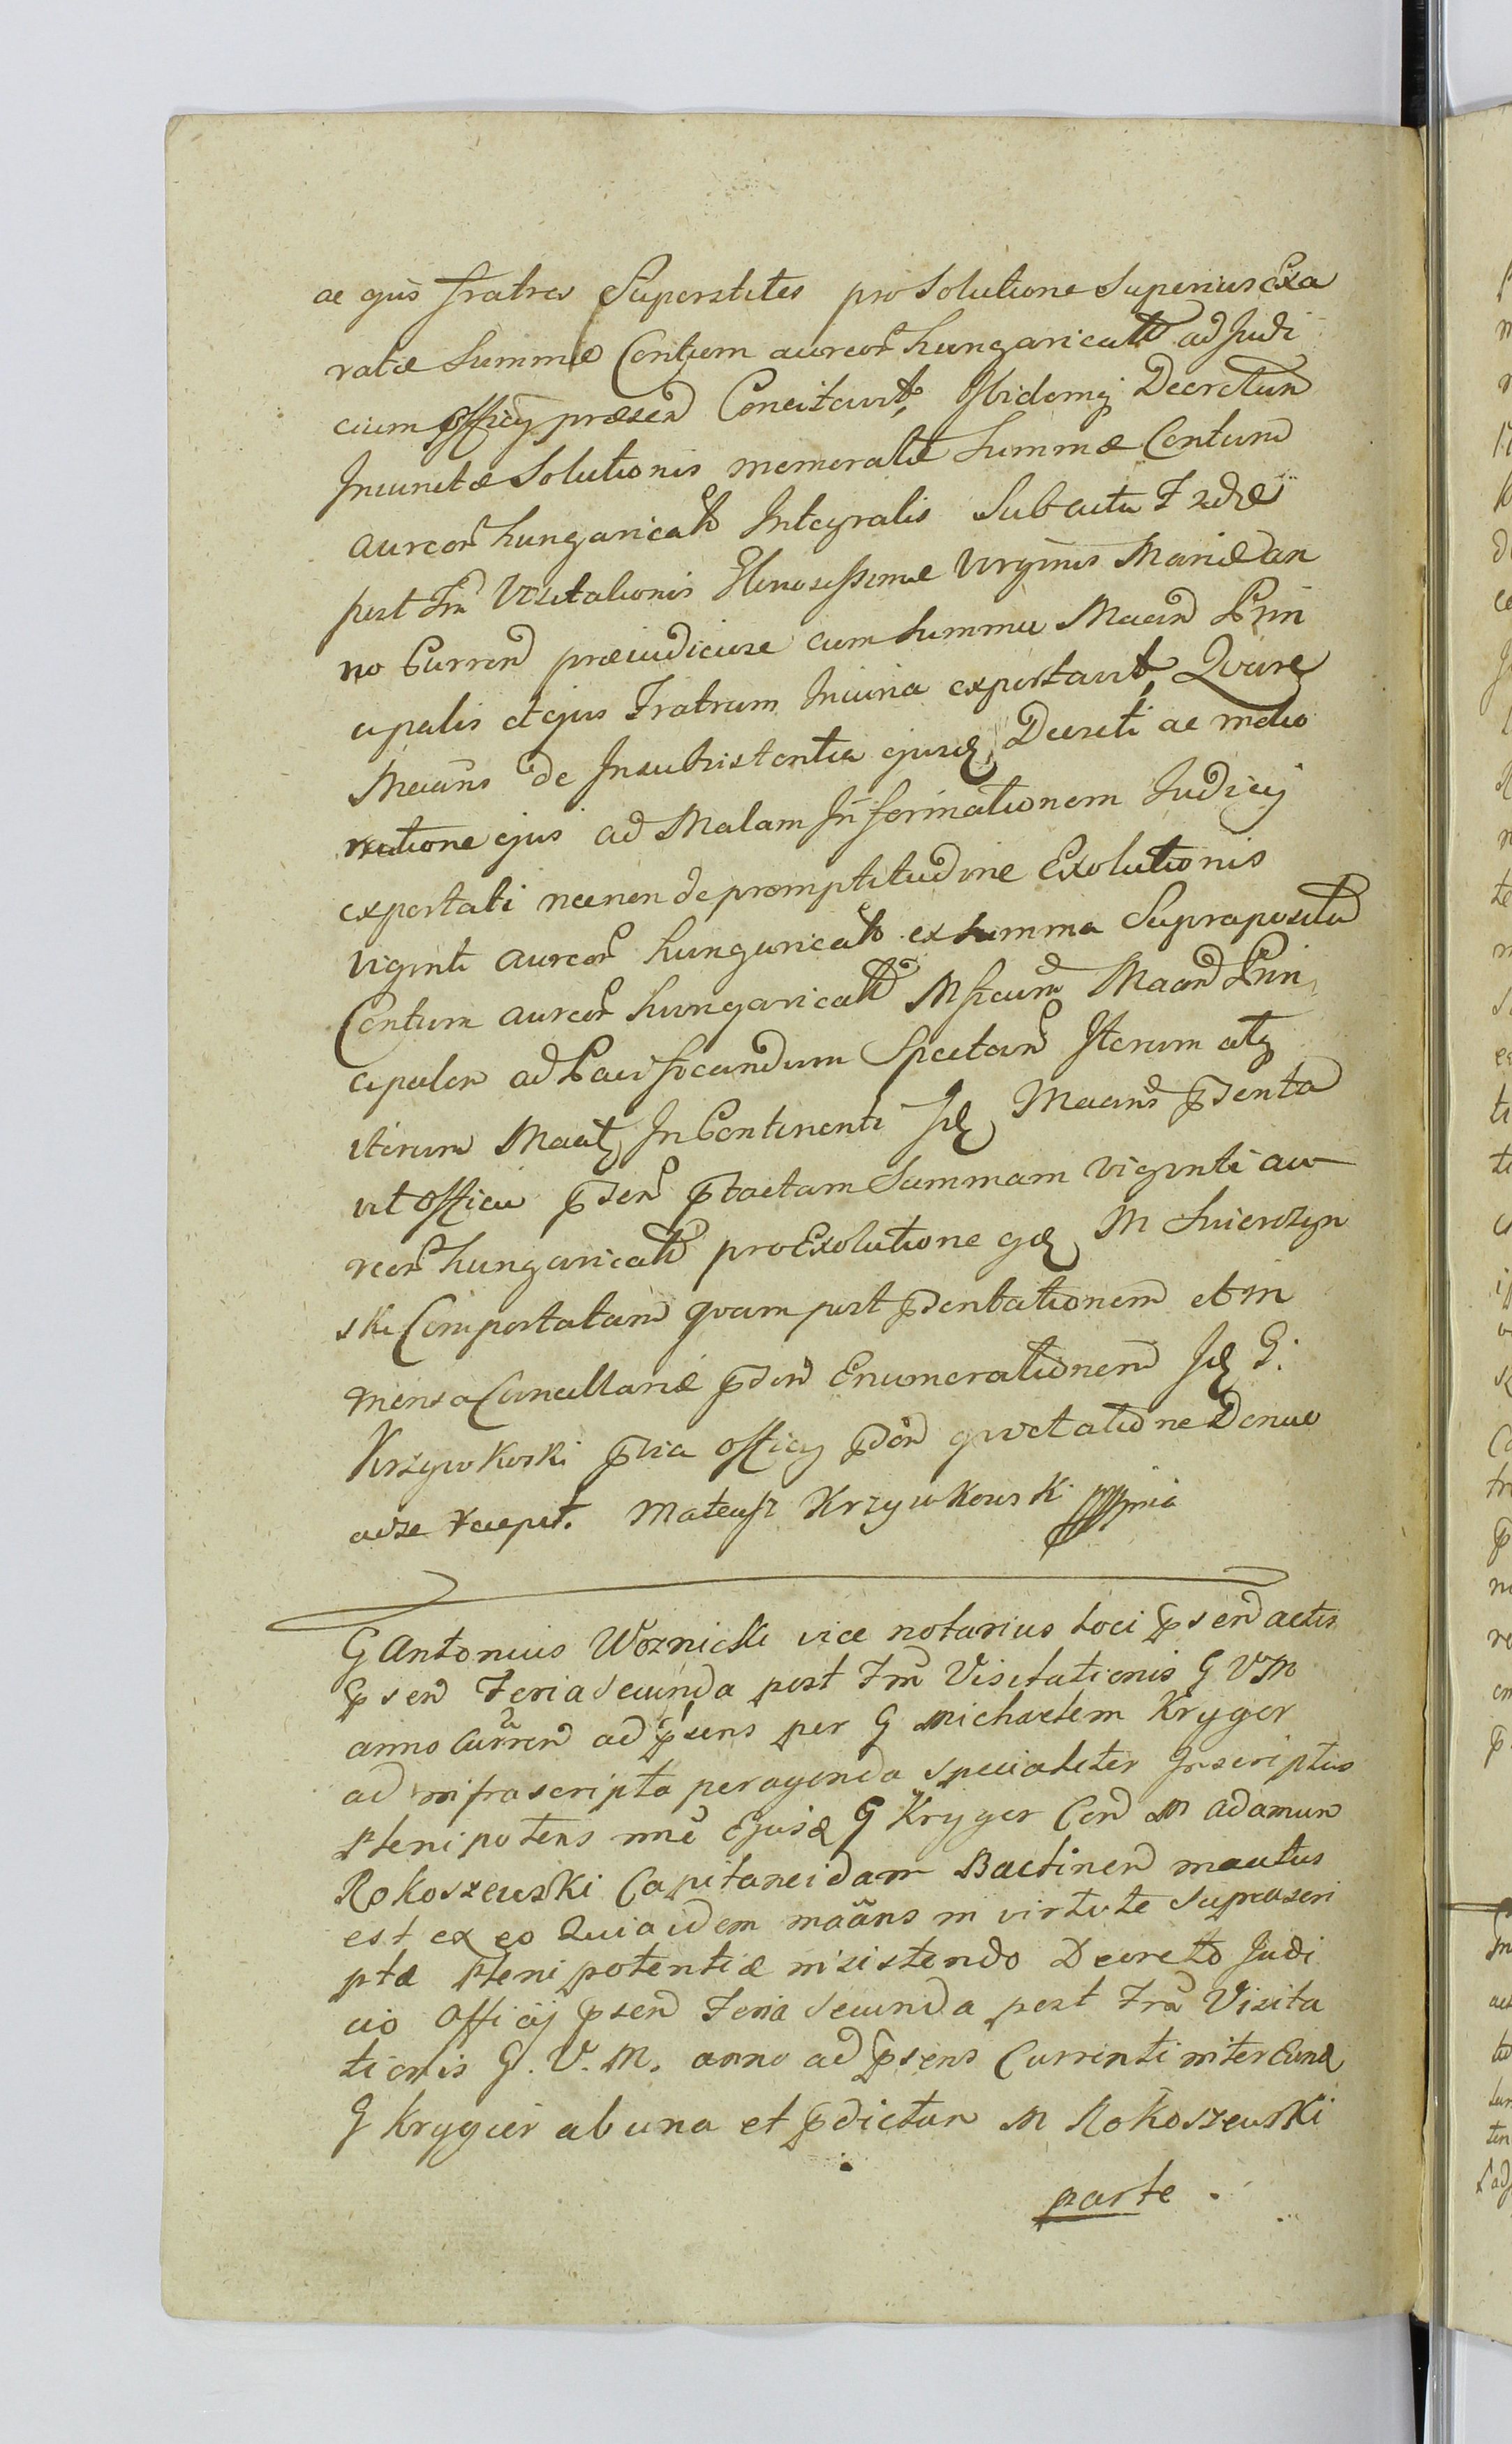 ac ejus fratres Superstites pro Solutione Superius Exa
ratæ Summæ Centum aureor hungaricał ad Judi
cium Officij præsen Concitavit, Ibidemq Decretum
Iniunctæ Solutionis memoratæ Summæ Centum
aureor hungaricał Integralis Sub actu F 2dæ
post Fm Visitationis Gloriosissimæ Virginis Mariæ an
no Curren præiudiciose cum Summa Maan Prin
cipalis et ejus Fratrum Iniuria exportavit, Qvare
Maans de Insubsistentia ejusd Decreti ac melio
ratione ejus ad Malam Informationem Judicij
exportati necnon de promptitudine Exolutionis
viginti aureor hungaricał ex Summa Supraposita
Centum aureor hungaricał Msicum Maan Prin
cipalem ad Pacificandum Spectan Iterum atq
iterum Maatq In Continenti Id Maans psenta
vit Officio psen ptactam Summam viginti au
reor hungaricał pro Exolutione gd M Swierczyn
ski Comportatam qvam post psentationem et in
mensa Cancellariæ psen Enumerationem Id G.
Krzywkoski pvia Officij psen qvietatione Denuo
ad se recepit. Mateusz Krzywkowski mpia
G Antonius Woznicki vice notarius loci psen actis
psen Feria Secunda post Fm Visitationis G V M
anno Curren ad psens per G Michaelem Kryger
ad infrascripta peragenda specialiter Inscriptus
Plenipotens nne Ejusd G Kryger Con M Adamum
Rokoszewski Capitaneidam Bactinen maatus
est ex eo Quia idem maans in virtute suprascri
ptæ Plenipotentiæ insistendo Decreto Judi
cio Officij psen Feria Secunda post Fm Visita
tionis G. V. M. anno ad psens Currenti inter Eund
G Krygier ab una et pdictum M Rokoszewski
parte